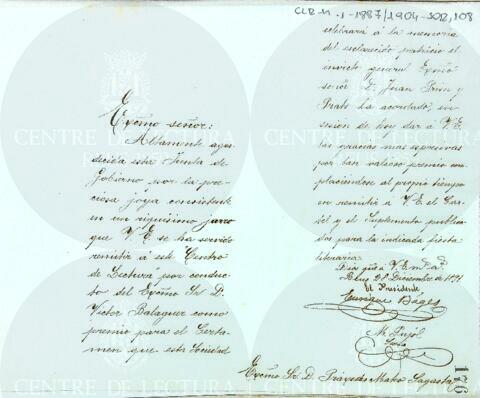 CLR-M.-1-1887/1904-SOB,108
Exćmo señor:
Altamente agra-
decida esta Junta de
Gobierno por la pre-
ciosa joya consistente
en un riquísimo jarro
que V. E. se ha servido
remitir á este Centro
de Lectura por conduc-
to del Exćmo Sr. D.
Victor Balaguer como
premio para el Certa-
men que esta Sociedad
celebrará á la memoria
del esclarecido patricio el
invicto general Exćmo
señor D. Juan Prim y
Prats ha acordado, en
sesión de hoy dar á V. E.
las gracias mas expresivas
por tan valioso premio com-
placiendose al propio tiempo
en remitir á V. E. el Car-
tel y el Suplemento publica-
dos para la indicada fiesta
literaria.
Dios gũe á V. E. m.s a.s
Reus 28 Diciembre de
El Presidente
Enrique Bages
M. Pujol
Exćmo Sr. D. Práxedes Mateo Sagasta
126
CENTRE DE LECTURA
CENTRE DE LECTURA
CENTRE DE LECTURA
CENTRE DE LECTURA